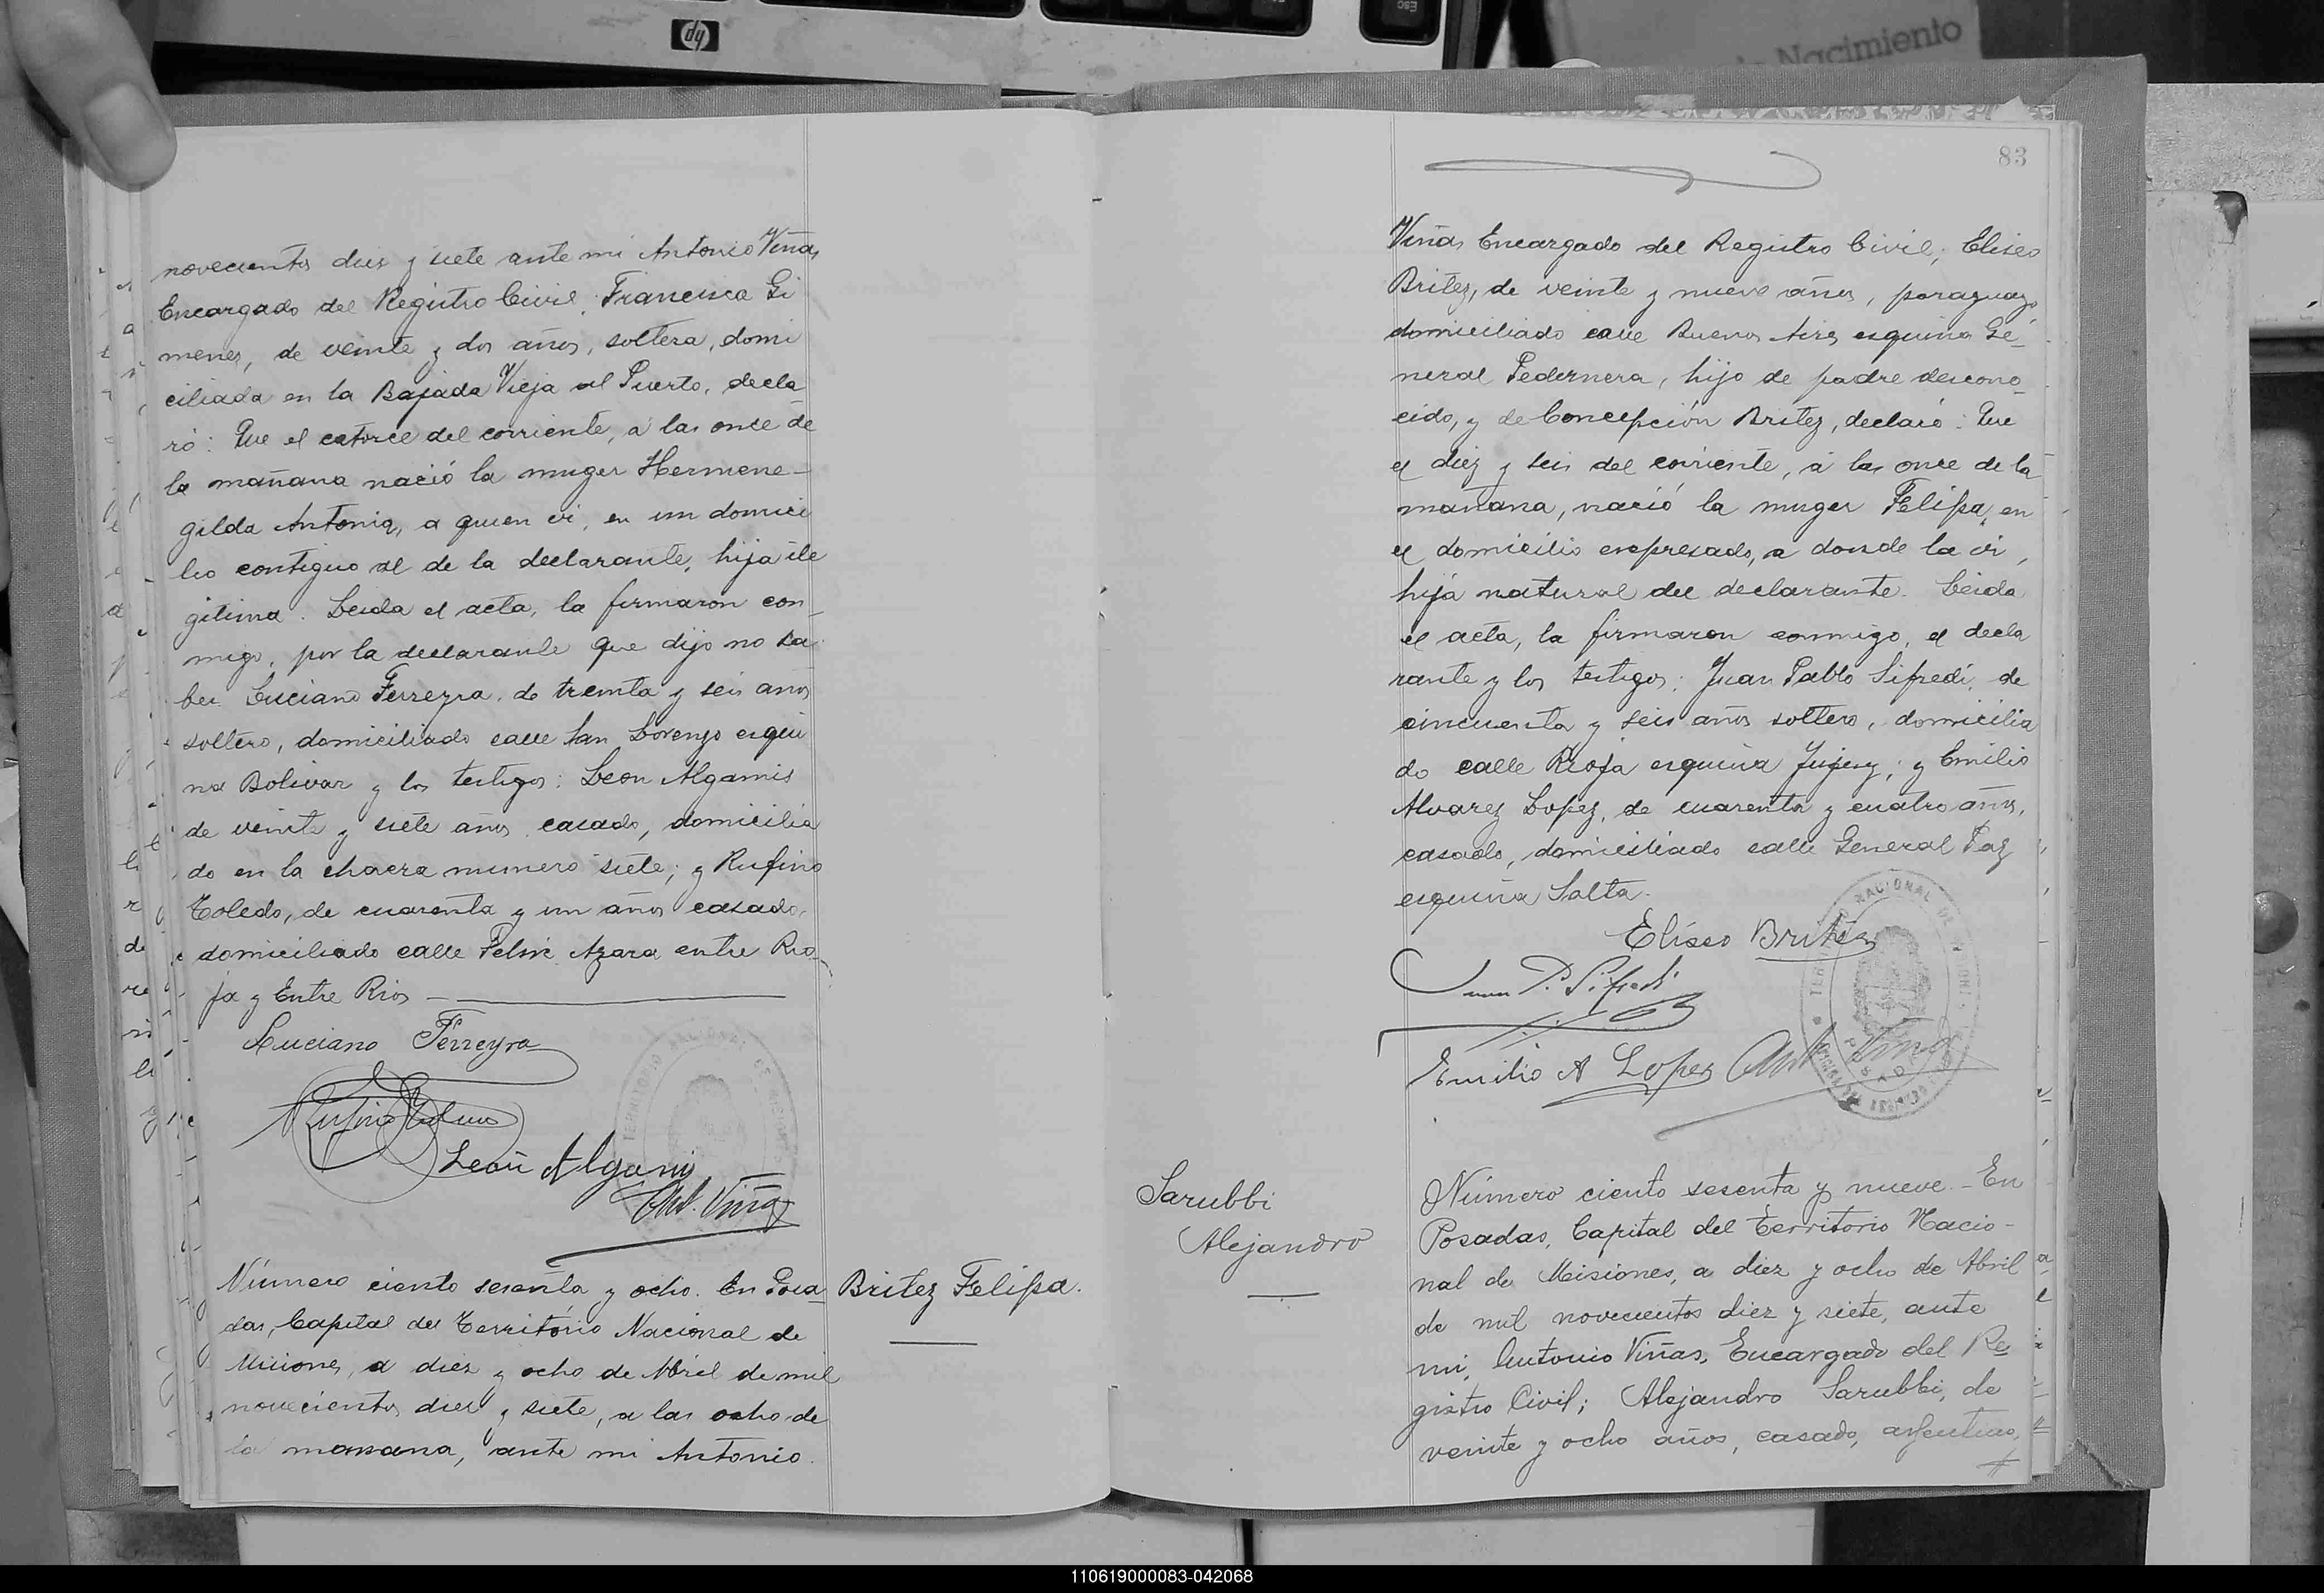 hp
Esc
Nacimiento
novecientos diez y siete ante mi Antonio Viñas
Encargado del Registro Civil; Francisca Gi
menez, de veinte y dos años, soltera, domi
ciliada en la Bajada Vieja al Puerto, decla
ró: Que el catorce del corriente, á las once de
la mañana nació la muger Hermene-
gilda Antonia, a quien vi, en un domici
lio contiguo al de la declarante, hija ile
gitima. Leida el acta, la firmaron con-
migo, por la declarante que dijo no sa
ber Luciano Ferreyra, de treinta y seis años
soltero, domiciliado calle San Lorenzo esqui
na Bolivar y los testigos: Leon Algamis
de veinte y siete años casado, domicilia
do en la chacra numero siete; y Rufino
Toledo, de cuarenta y un años casado,
domiciliado calle Felix Azara entre Rio-
ja y Entre Rios
Luciano Ferreyra
Rufino Toledo
León Algamis
Ant. Viñas
Número ciento sesenta y ocho. En Posa
das, Capital del Territorio Nacional de
Misiones, a diez y ocho de Abril de mil
novecientos diez y siete, a las ocho de
la manana, ante mi Antonio
Britez Felipa.
83
Viñas Encargado del Registro Civil; Eliseo
Britez, de veinte y nueve años, paraguayo
domiciliado calle Buenos Aires esquina Ge-
neral Pedernera, hijo de padre descono-
cido, y de Concepción Britez, declaró: Que
el diez y seis del corriente, á las once de la
mañana, nació la muger Felipa, en
el domicilio expresado, a donde la vi,
hija natural del declarante. Leida
el acta, la firmaron conmigo, el decla
rante y los testigos: Juan Pablo Sifredi, de
cincuenta y seis años soltero, domicilia
do calle Rioja esquina Jujuy; y Emilio
Alvarez Lopez, de cuarenta y cuatro años,
casado, domiciliado calle General Paz
esquina Salta.
Eliseo Britez
Juan P. Sifredi
Emilio A Lopez Ant Viñas
TERRITORIO NACIONAL DE MISIONES
POSADAS
Sarubbi
Alejandro
Número ciento sesenta y nueve.- En
Posadas, Capital del Territorio Nacio-
nal de Misiones, a diez y ocho de Abril
de mil novecientos diez y siete, ante
mi, Antonio Viñas, Encargado del Re
gistro Civil; Alejandro Sarubbi, de
veinte y ocho años, casado, argentino,
110619000083-042068